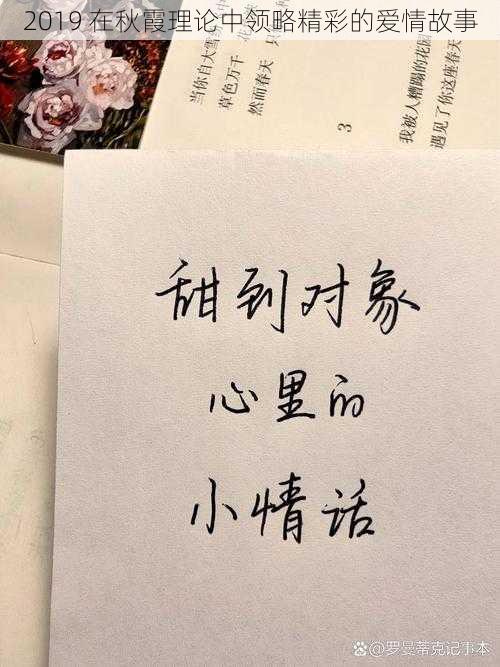 2019 在秋霞理论中领略精彩的爱情故事
当你自大雪纷
草色万千
然而春天
3
我被人糟蹋的花园
遇见了你这座春天
甜到对象
心里的
小情话
@罗曼蒂克记事本